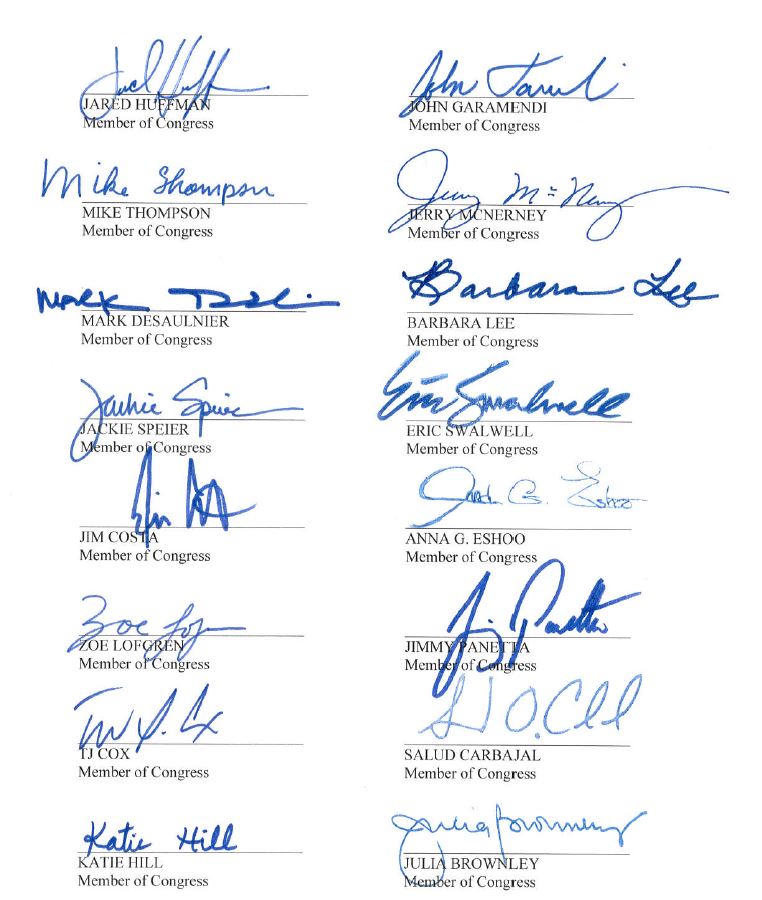 Jared Huffman John Garamendi
JARED HUFFMAN JOHN GARAMENDI
Member of Congress Member of Congress
Mike Thompson Jerry McNerney
MIKE THOMPSON JERRY MCNERNEY
Member of Congress Member of Congress
Mark DeSaulnier Barbara Lee
MARK DESAULNIER BARBARA LEE
Member of Congress Member of Congress
Jackie Speier Eric Swalwell
JACKIE SPEIER ERIC SWALWELL
Member of Congress Member of Congress
Jim Costa Anna G. Eshoo
JIM COSTA ANNA G. ESHOO
Member of Congress Member of Congress
Zoe Lofgren Jimmy Panetta
ZOE LOFGREN JIMMY PANETTA
Member of Congress Member of Congress
TJ Cox
TJ COX SALUD CARBAJAL
Member of Congress Member of Congress
Katie Hill Julia Brownley
KATIE HILL JULIA BROWNLEY
Member of Congress Member of Congress